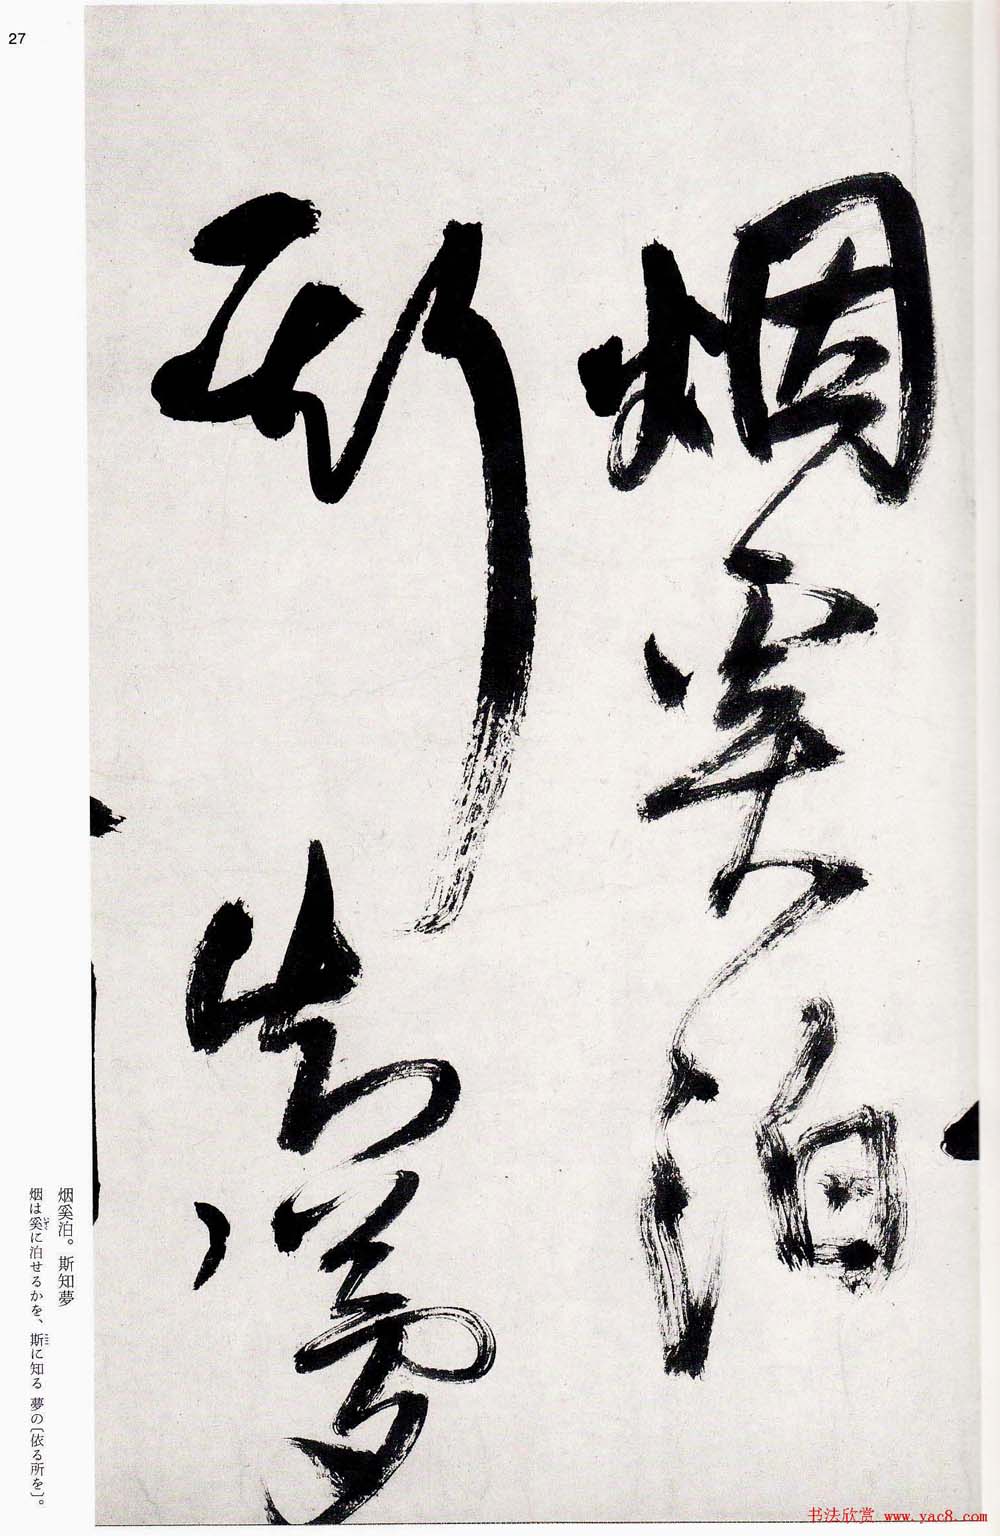 27
烟奚泊
斯知夢
烟奚泊。斯知夢
烟は奚に泊せるかを、斯に知る 夢の〔依る所を〕。
书法欣赏 www.yac8.com